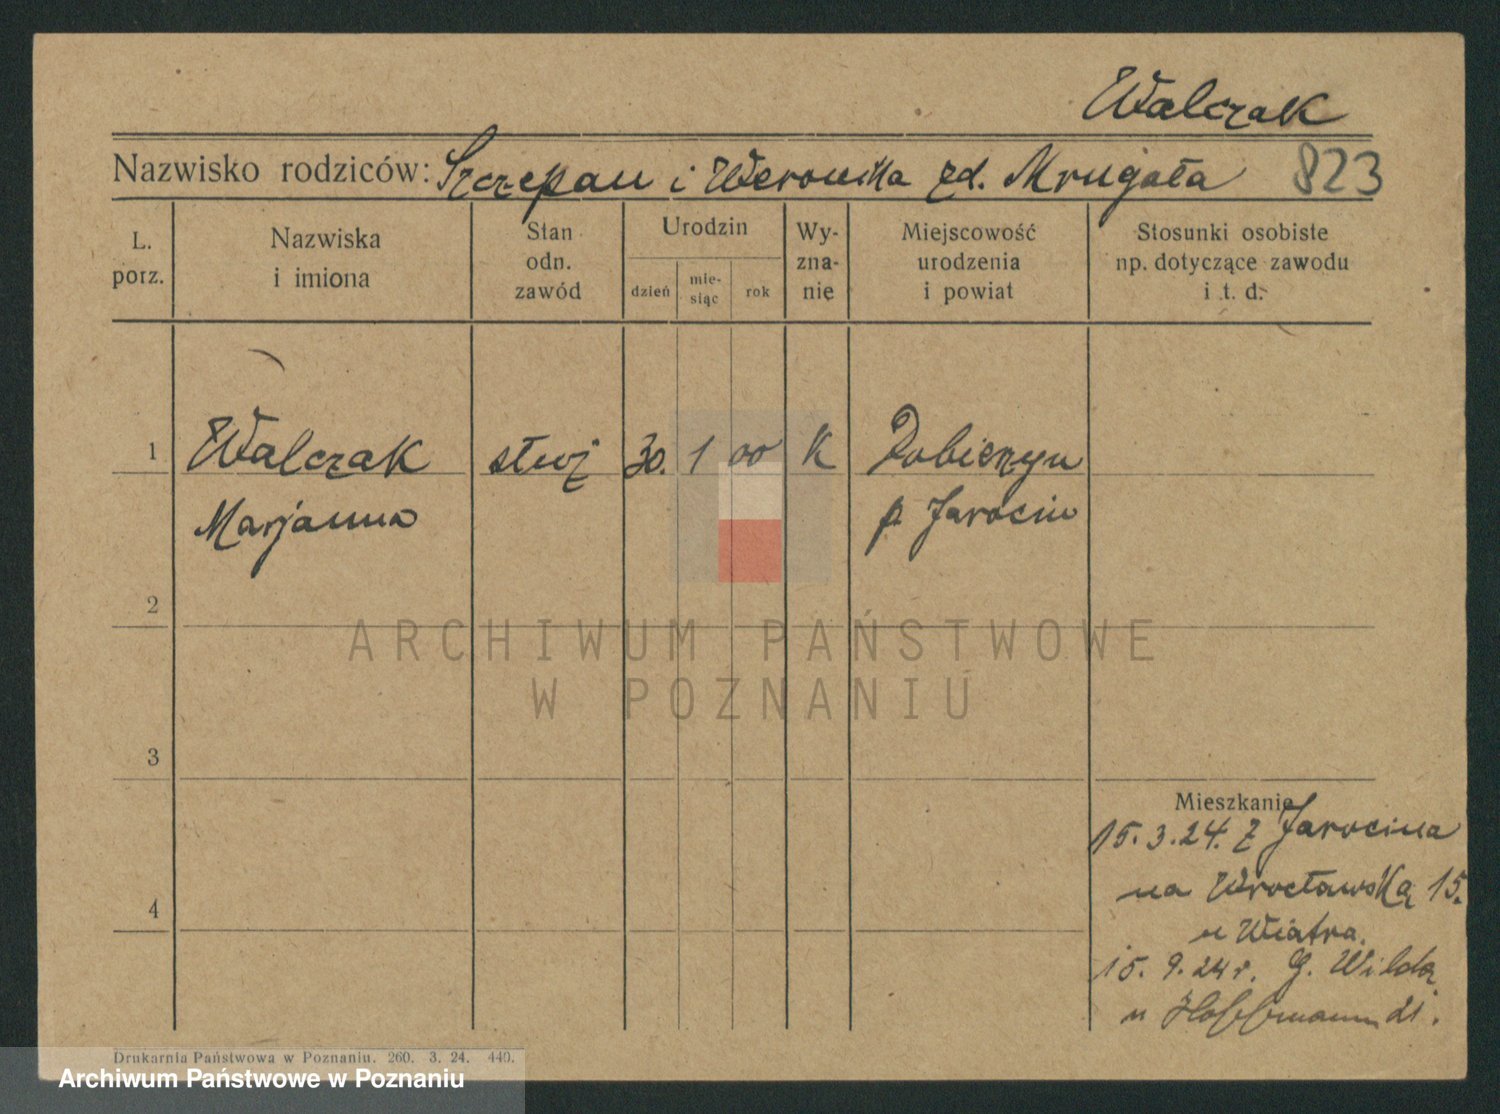 Walczak
Nazwisko rodziców: Szczepan i Weronika zd. Mrugała 823
L. porz. Nazwiska i imiona Stan odn. zawód Urodzin dzień mie-siąc rok Wy-zna-nie Miejscowość urodzenia i powiat Stosunki osobiste np. dotyczące zawodu i t. d.
1 Walczak służ 30. 1 00 K Dobieszyn
Marjanna p. Jarocin
2
ARCHIWUM PAŃSTWOWE
W POZNANIU
3
Mieszkanie
15.3.24. z Jarocina
na Wrocławską 15.
u Wiatra.
4
15. 9. 24 r. G. Wildą
u Hoffmann 21.
Drukarnia Państwowa w Poznaniu. 260. 3. 24. 440.
Archiwum Państwowe w Poznaniu